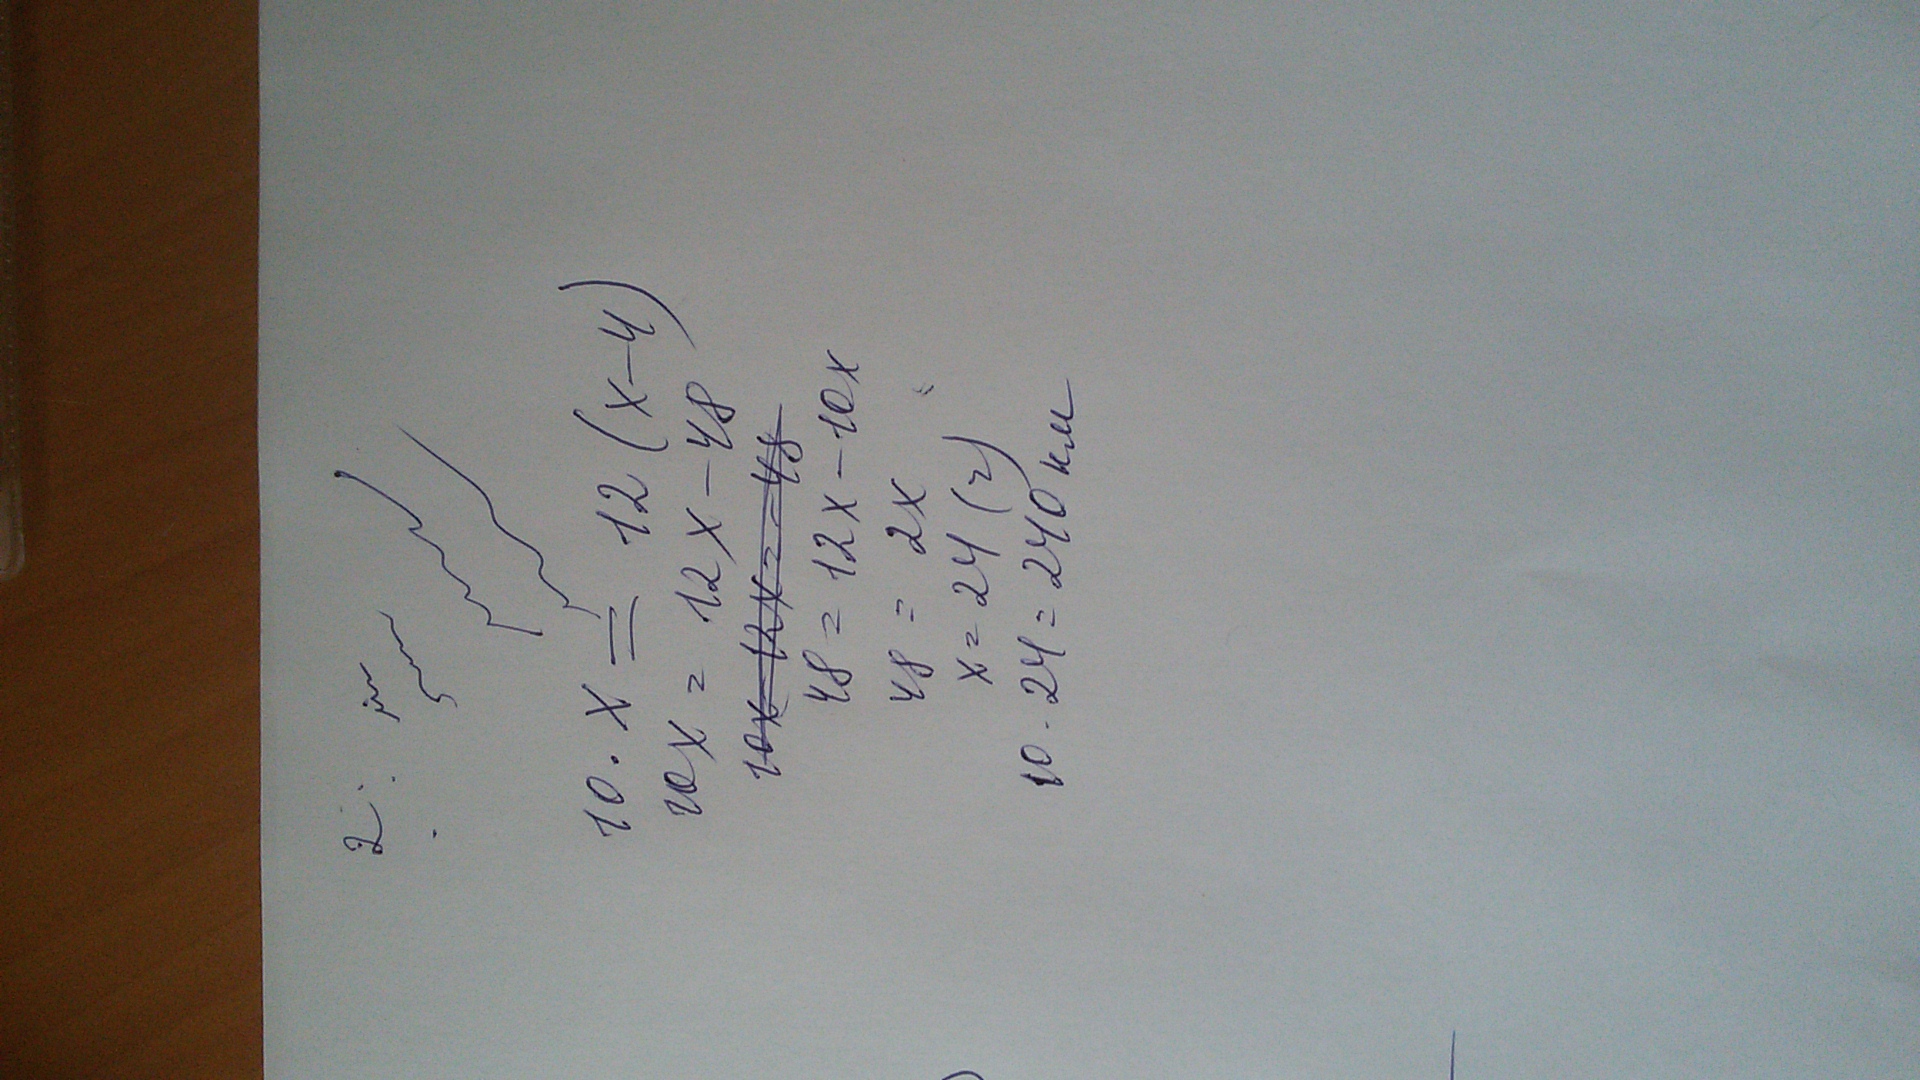 2.
10·x = 12(x-4)
10x = 12x-48
10x-12x=-48
48 = 12x-10x
48 = 2x
x=24(ч)
10·24=240км